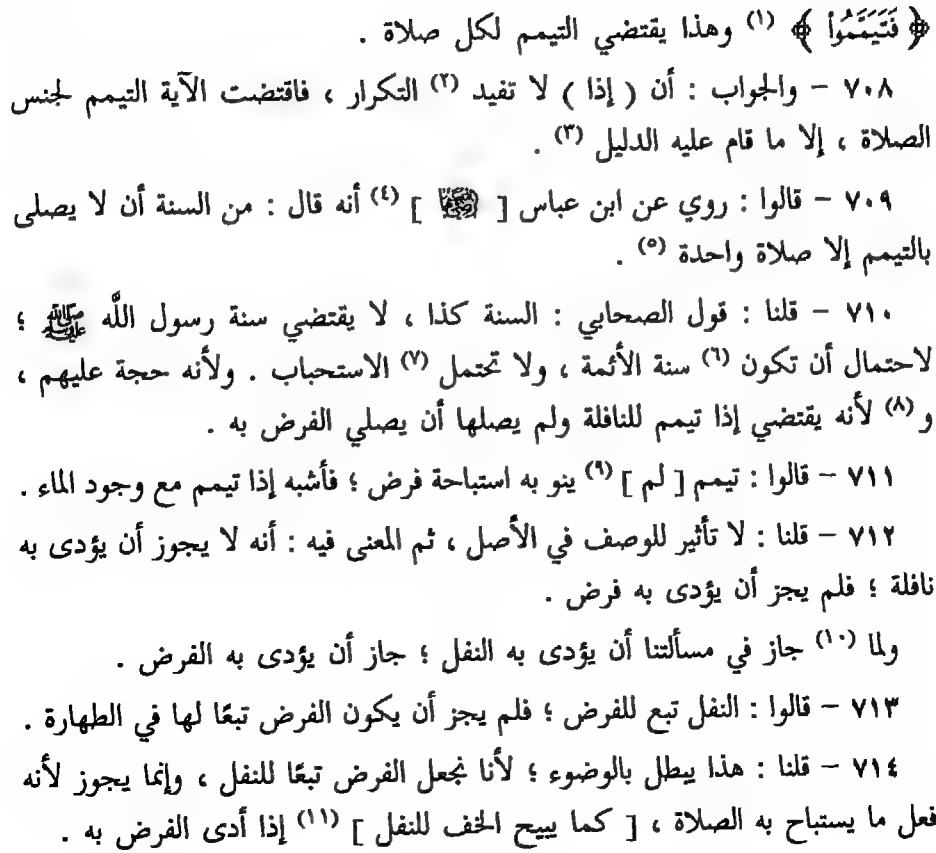 ﴿ فَتَيَمَّمُوا ﴾ (١) وهذا يقتضي التيمم لكل صلاة .
٧٠٨ – والجواب : أن ( إذا ) لا تفيد (٢) التكرار ، فاقتضت الآية التيمم لجنس
الصلاة ، إلا ما قام عليه الدليل (٣) .
٧٠٩ – قالوا : روي عن ابن عباس [ ﵁ ] (٤) أنه قال : من السنة أن لا يصلى
بالتيمم إلا صلاة واحدة (٥) .
٧١٠ – قلنا : قول الصحابي : السنة كذا ، لا يقتضي سنة رسول اللَّه ﷺ ؛
لاحتمال أن تكون (٦) سنة الأئمة ، ولا تحتمل (٧) الاستحباب . ولأنه حجة عليهم ،
و (٨) لأنه يقتضي إذا تيمم للنافلة ولم يصلها أن يصلي الفرض به .
٧١١ – قالوا : تيمم [ لم ] (٩) ينو به استباحة فرض ؛ فأشبه إذا تيمم مع وجود الماء .
٧١٢ – قلنا : لا تأثير للوصف في الأصل ، ثم المعنى فيه : أنه لا يجوز أن يؤدى به
نافلة ؛ فلم يجز أن يؤدى به فرض .
ولما (١٠) جاز في مسألتنا أن يؤدى به النفل ؛ جاز أن يؤدى به الفرض .
٧١٣ – قالوا : النفل تبع للفرض ؛ فلم يجز أن يكون الفرض تبعًا لها في الطهارة .
٧١٤ – قلنا : هذا يبطل بالوضوء ؛ لأنا نجعل الفرض تبعًا للنفل ، وإنما يجوز لأنه
فعل ما يستباح به الصلاة ، [ كما يبيح الخف للنفل ] (١١) إذا أدى الفرض به .